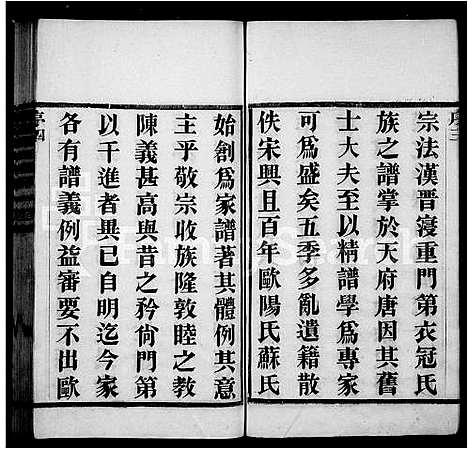 序三
宗法漢晉寖重門第衣冠氏
族之譜掌於天府唐因其舊
士大夫至以精譜學爲專家
可爲盛矣五季多亂遺籍散
佚宋興且百年歐陽氏蘇氏
始創爲家譜著其體例其意
主乎敬宗收族隆敦睦之教
陳義甚高與昔之矜尙門第
以干進者異已自明迄今家
各有譜義例益審要不出歐
序四
FamilySearch